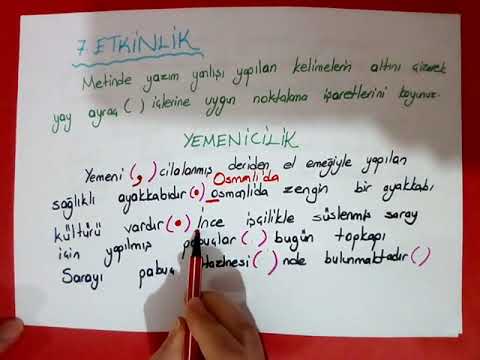 7. ETKİNLİK
Metinde yazım yanlışı yapılan kelimelerin altını çizerek
yay ayraç ( ) içlerine uygun noktalama işaretlerini koyunuz.
YEMENİCİLİK
Yemeni (,) cilalanmış deriden el emeğiyle yapılan
Osmanlı'da
sağlıklı ayakkabıdır (.) osmanlı'da zengin bir ayakkabı
kültürü vardır (.) İnce işçilikle süslenmiş saray
için yapılmış pabuçlar ( ) bugün topkapı
Sarayı pabuç Hazinesi ( ) nde bulunmaktadır ( )